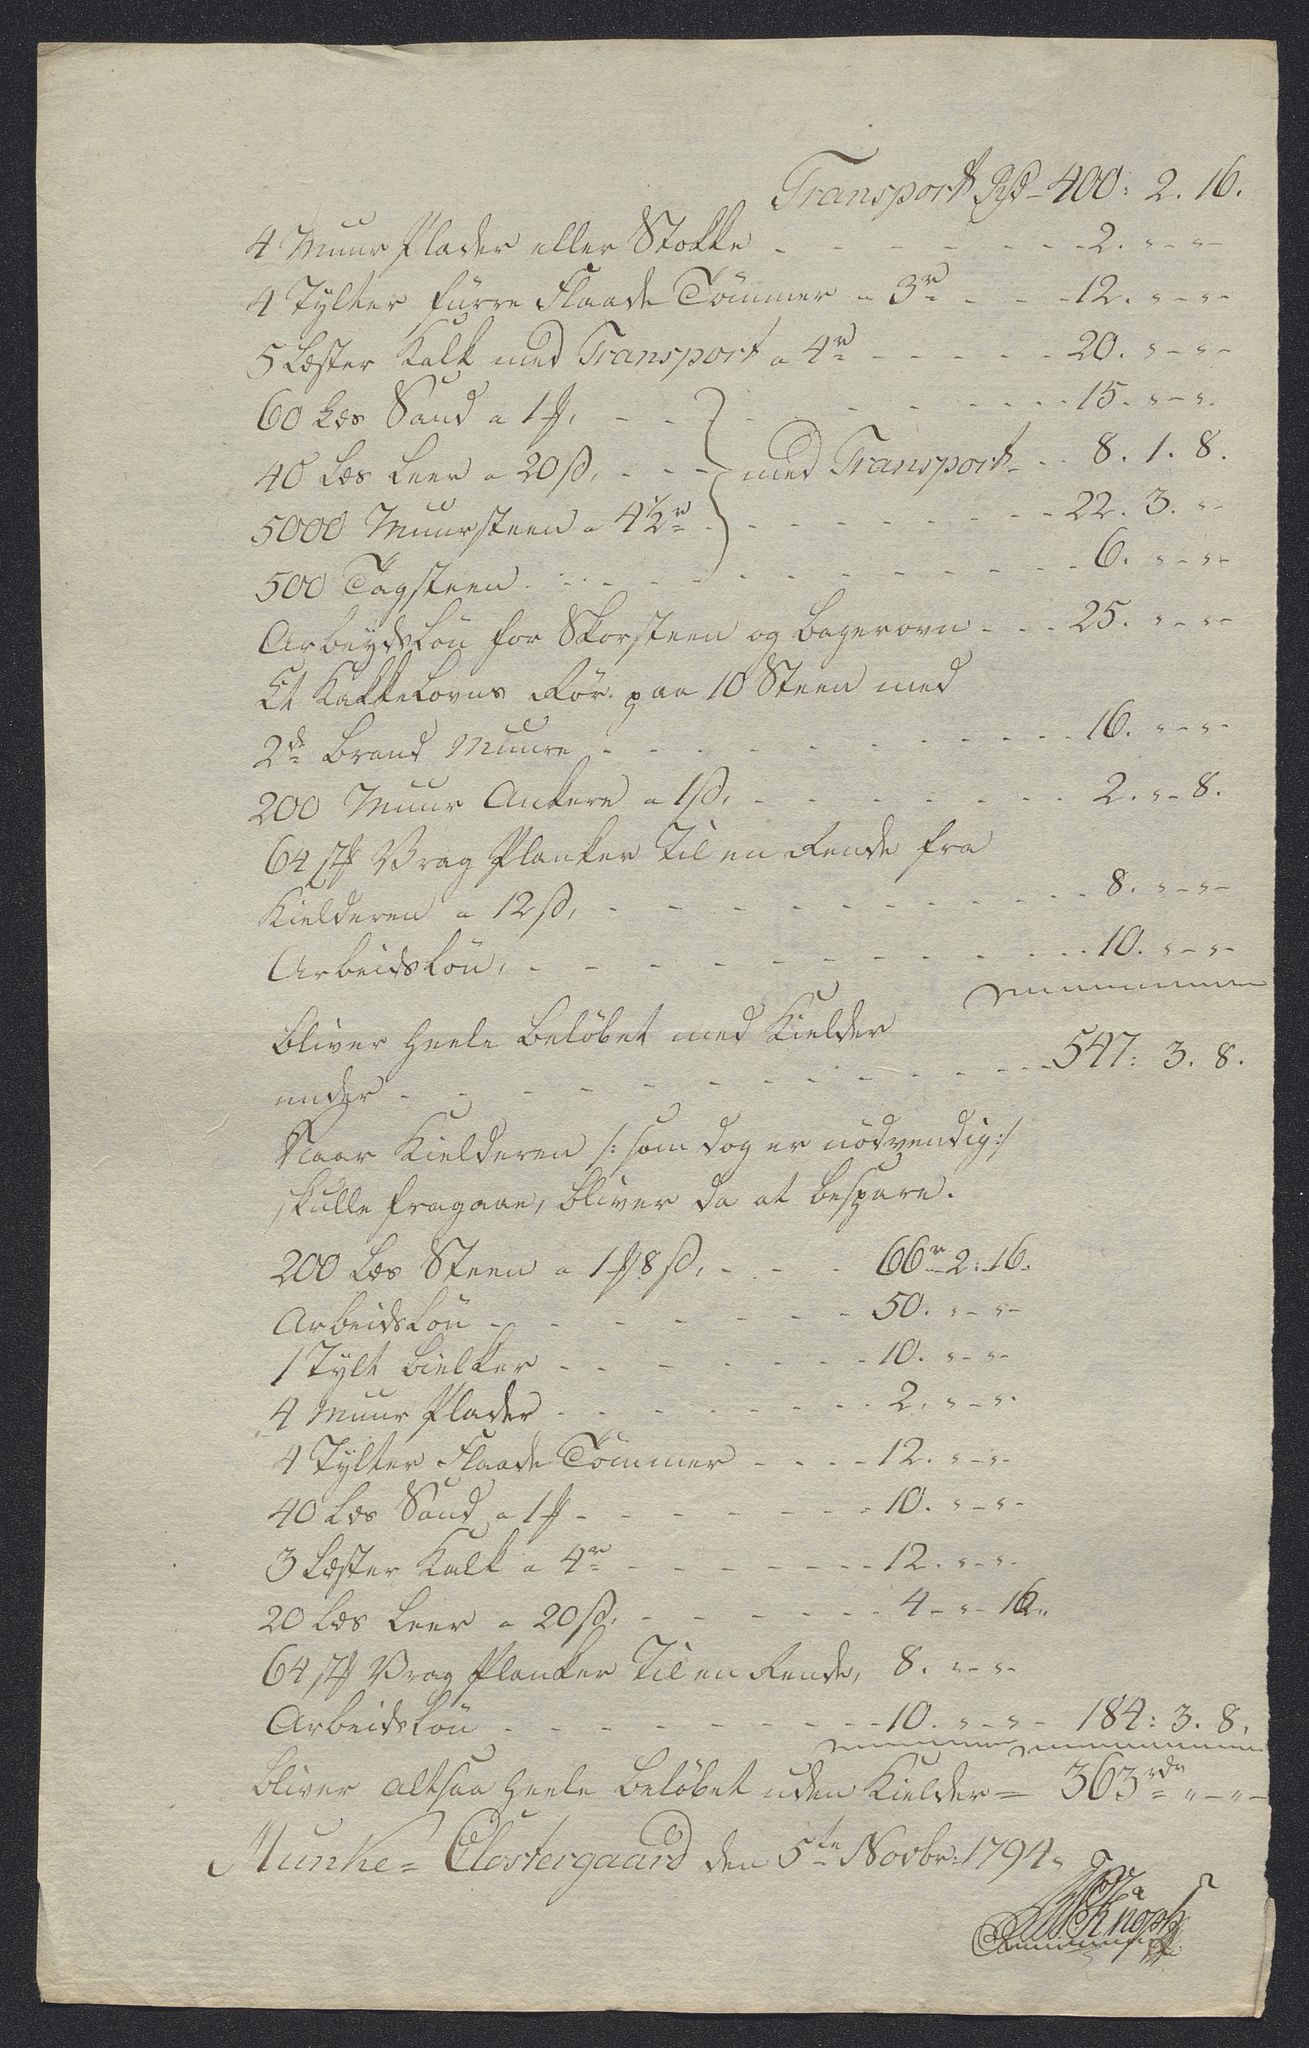 Transport Rd – 400: 2. 16.
4 Muur Plader eller Stokke - - - 2. " - " -
4 Tylter furre Flaade Tömmer a 3r - - - 12. " - " -
5 Læster Kalk med Transport a 4r - - - 20. " - " -
60 Læs Sand a 1 ℔, - - - 15. " - ".
40 Læs Leer a 20 ß, - - - med Transport - - 8. 1. 8.
5000 Muursteen a 4½r - - - 22. 3. " -
500 Tagsteen - - - 6. " - " -
Arbeydslön for Skorsteen og bagerovn - - - 25. " - " -
Et Kakkelovns Rör paa 10 Steen med
2de brand Muure - - - 16. " - " -
200 Muur Ankere a 1 ß, - - - 2. " - 8.
64 st Vrag Planker Til en Rende fra
Kielderen a 12 ß, - - - 8. " - " -
Arbeidslön, - - - 10. " - " -
bliver heele belöbet med Kielder
under - - - 547: 3. 8.
Naar Kielderen /: som dog er nödvendig :/
skulle fragaae, bliver da at bespare.
200 Læs Steen a 1 ℔ 8 ß, - - - 66r 2: 16.
Arbeidslön - - - 50. " - " -
1 Tylt bielker - - - 10. " - " -
4 Muur Plader - - - 2. " - ".
4 Tylter Flaade Tömmer - - - 12. " - " -
40 Læs Sand a 1 ℔ - - - 10. " - " -
3 Læster Kalk a 4r - - - 12. " - ".
20 Læs Leer a 20 ß, - - - 4 - " - 16.
64 st Vrag Planker Til en Rende, 8. " - " -
Arbeidslön - - - 10. " - " - 184: 3. 8.
bliver altsaa heele belöbet uden Kielder = 363rdr " - " -
Munke = Clostergaard den 5te Novbr: 1794.
Knoph